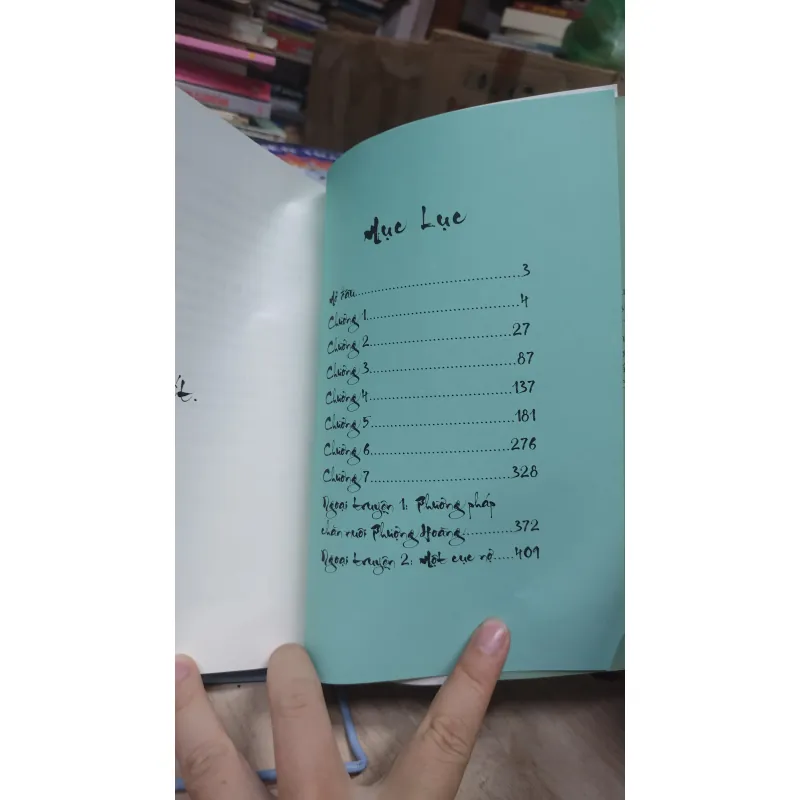 Mục Lục
Mở đầu...............................3
Chương 1...............................4
Chương 2...............................27
Chương 3...............................87
Chương 4...............................137
Chương 5...............................181
Chương 6...............................276
Chương 7...............................328
Ngoại truyện 1: Phương pháp
chăn nuôi Phượng Hoàng............372
Ngoại truyện 2: Một cục nợ.....409